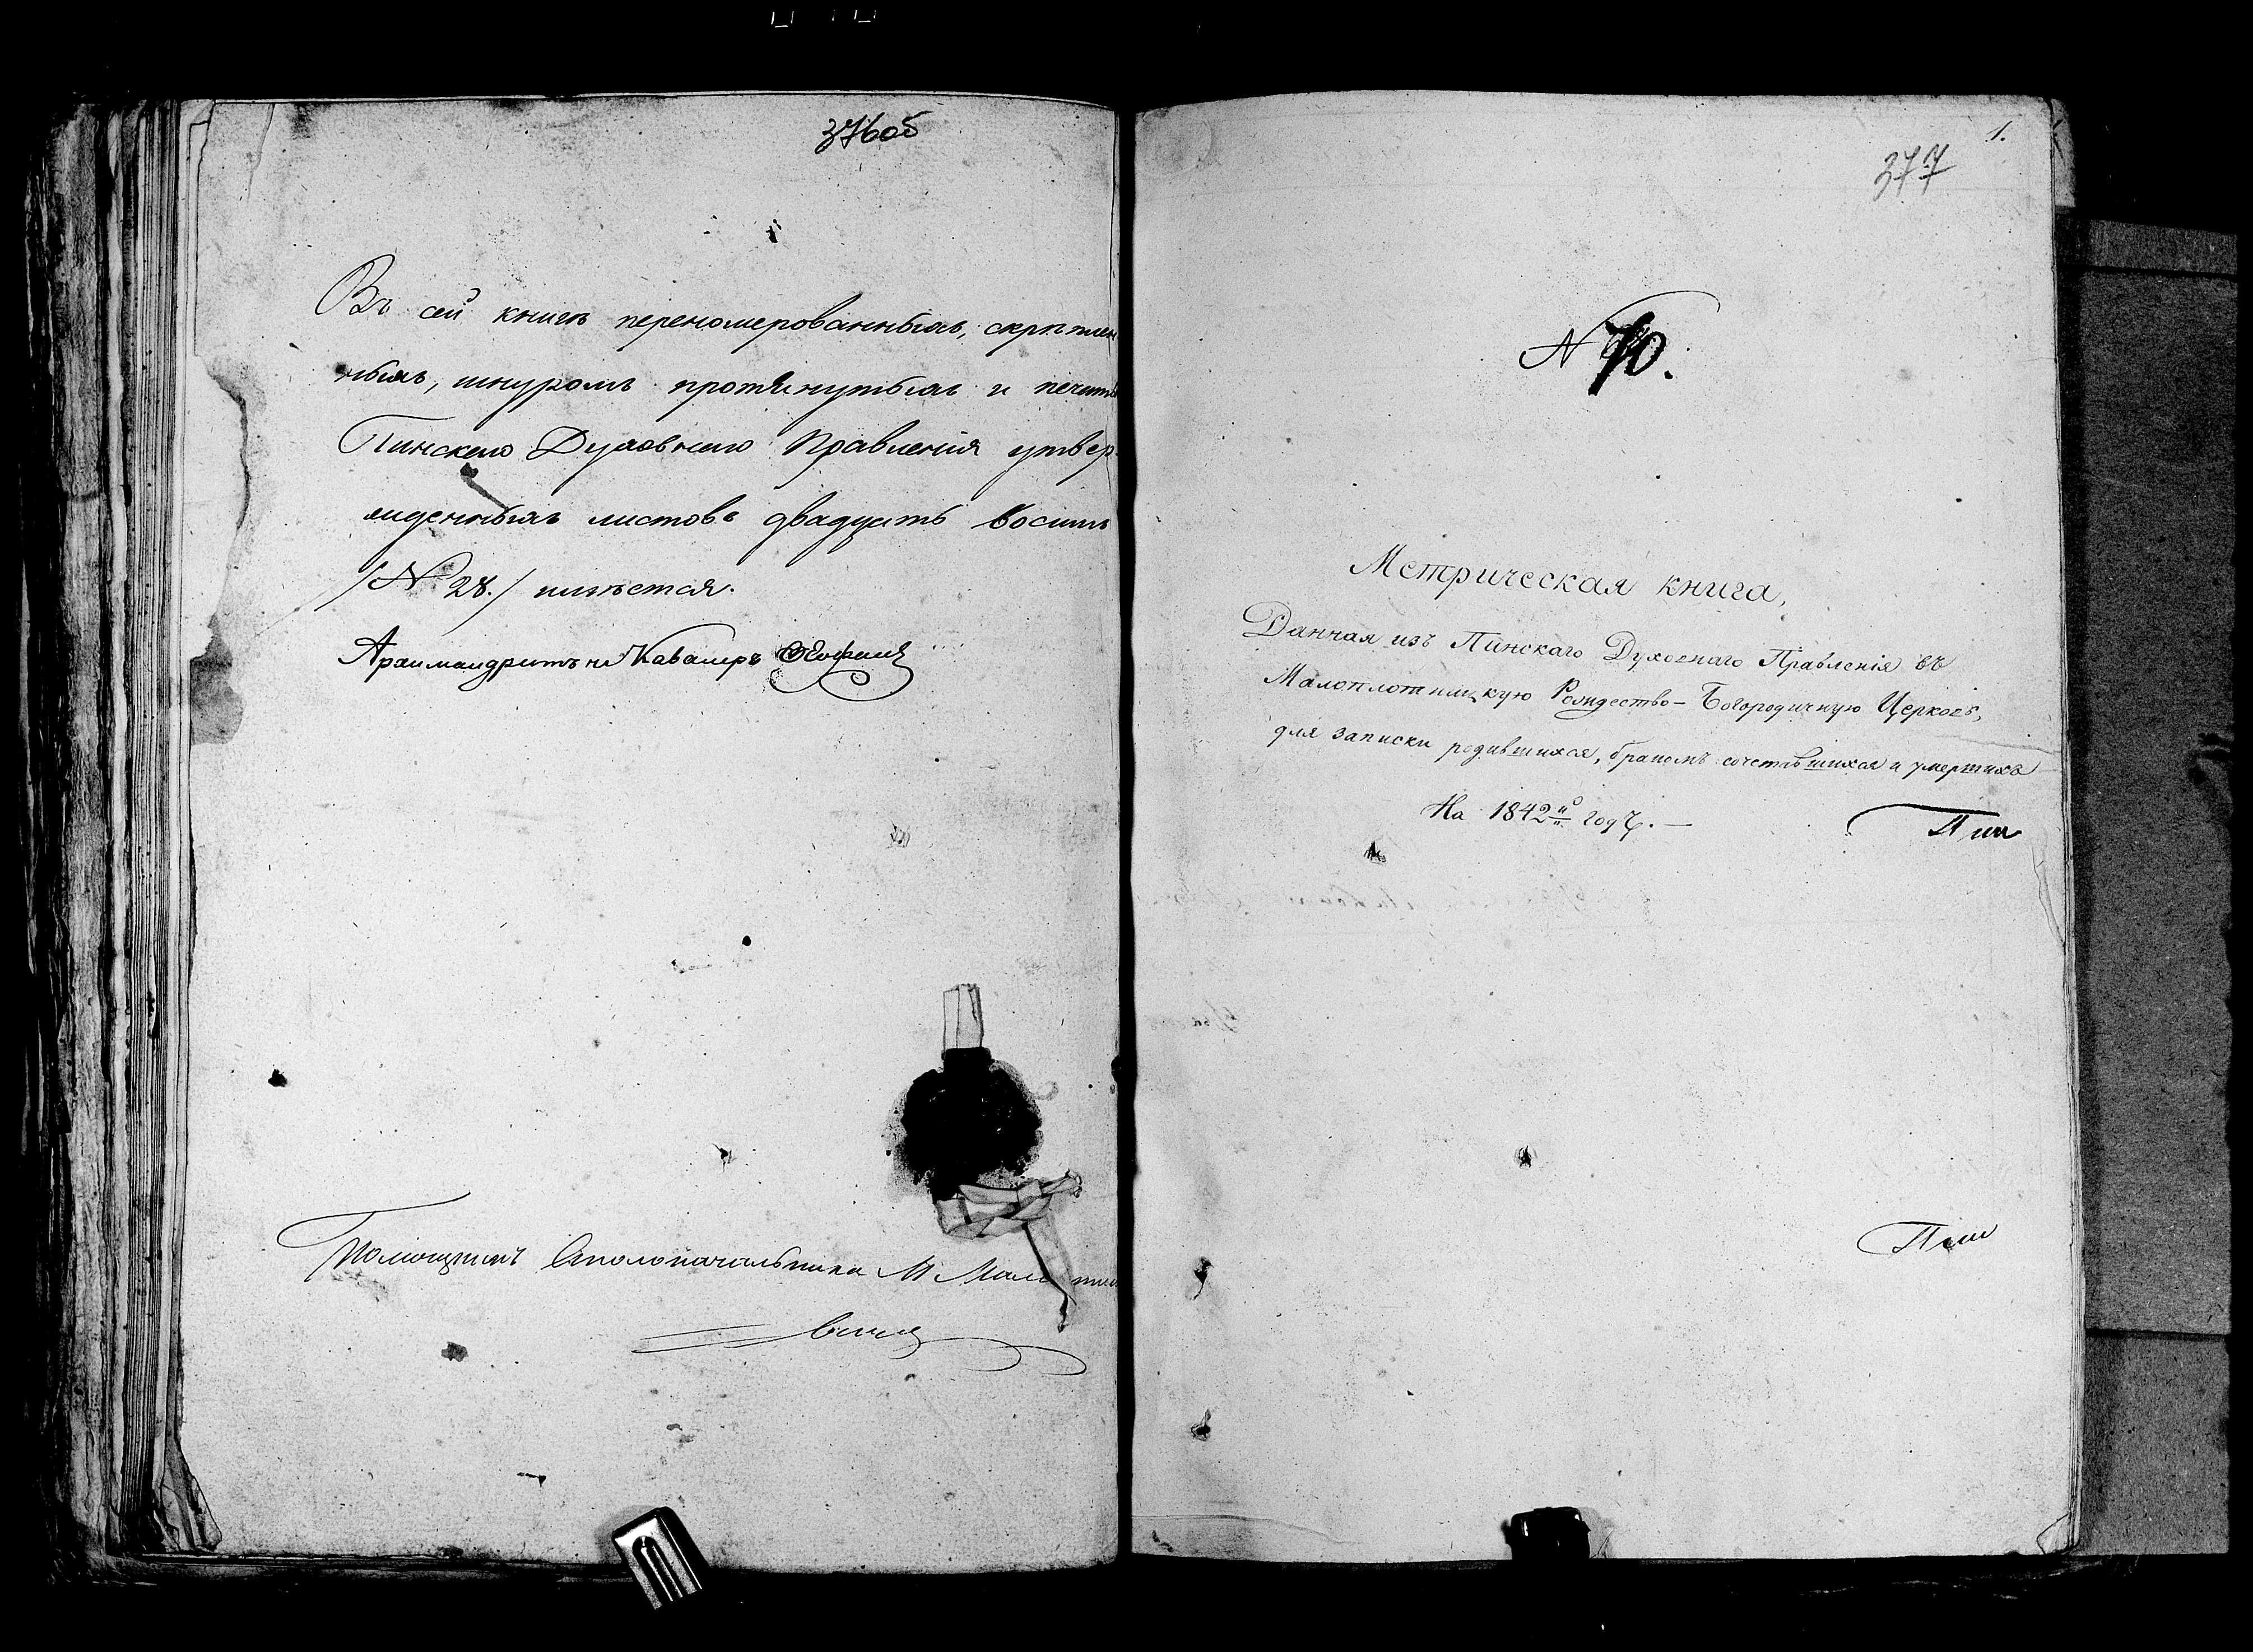 376об
Въ сей книгѣ переномерованныхъ, скрѣплен
ныхъ, шнуромъ протянутыхъ и печатью
Пинскаго Духовнаго Правленія утвер
жденныхъ листовъ двадцать восимь
/№ 28./ имѣется.
Архимандритъ и Кавалеръ
Помощникъ Столоначальника М
1.
377
N 70.
Метрическая книга,
Данная изъ Пинскаго Духовнаго Правленія въ
Малоплотницкую Рождество-Богородичную Церковь,
для записки родившихся, бракомъ сочетавшихся и умершихъ
На 1842й годъ. —
Пин
Пин